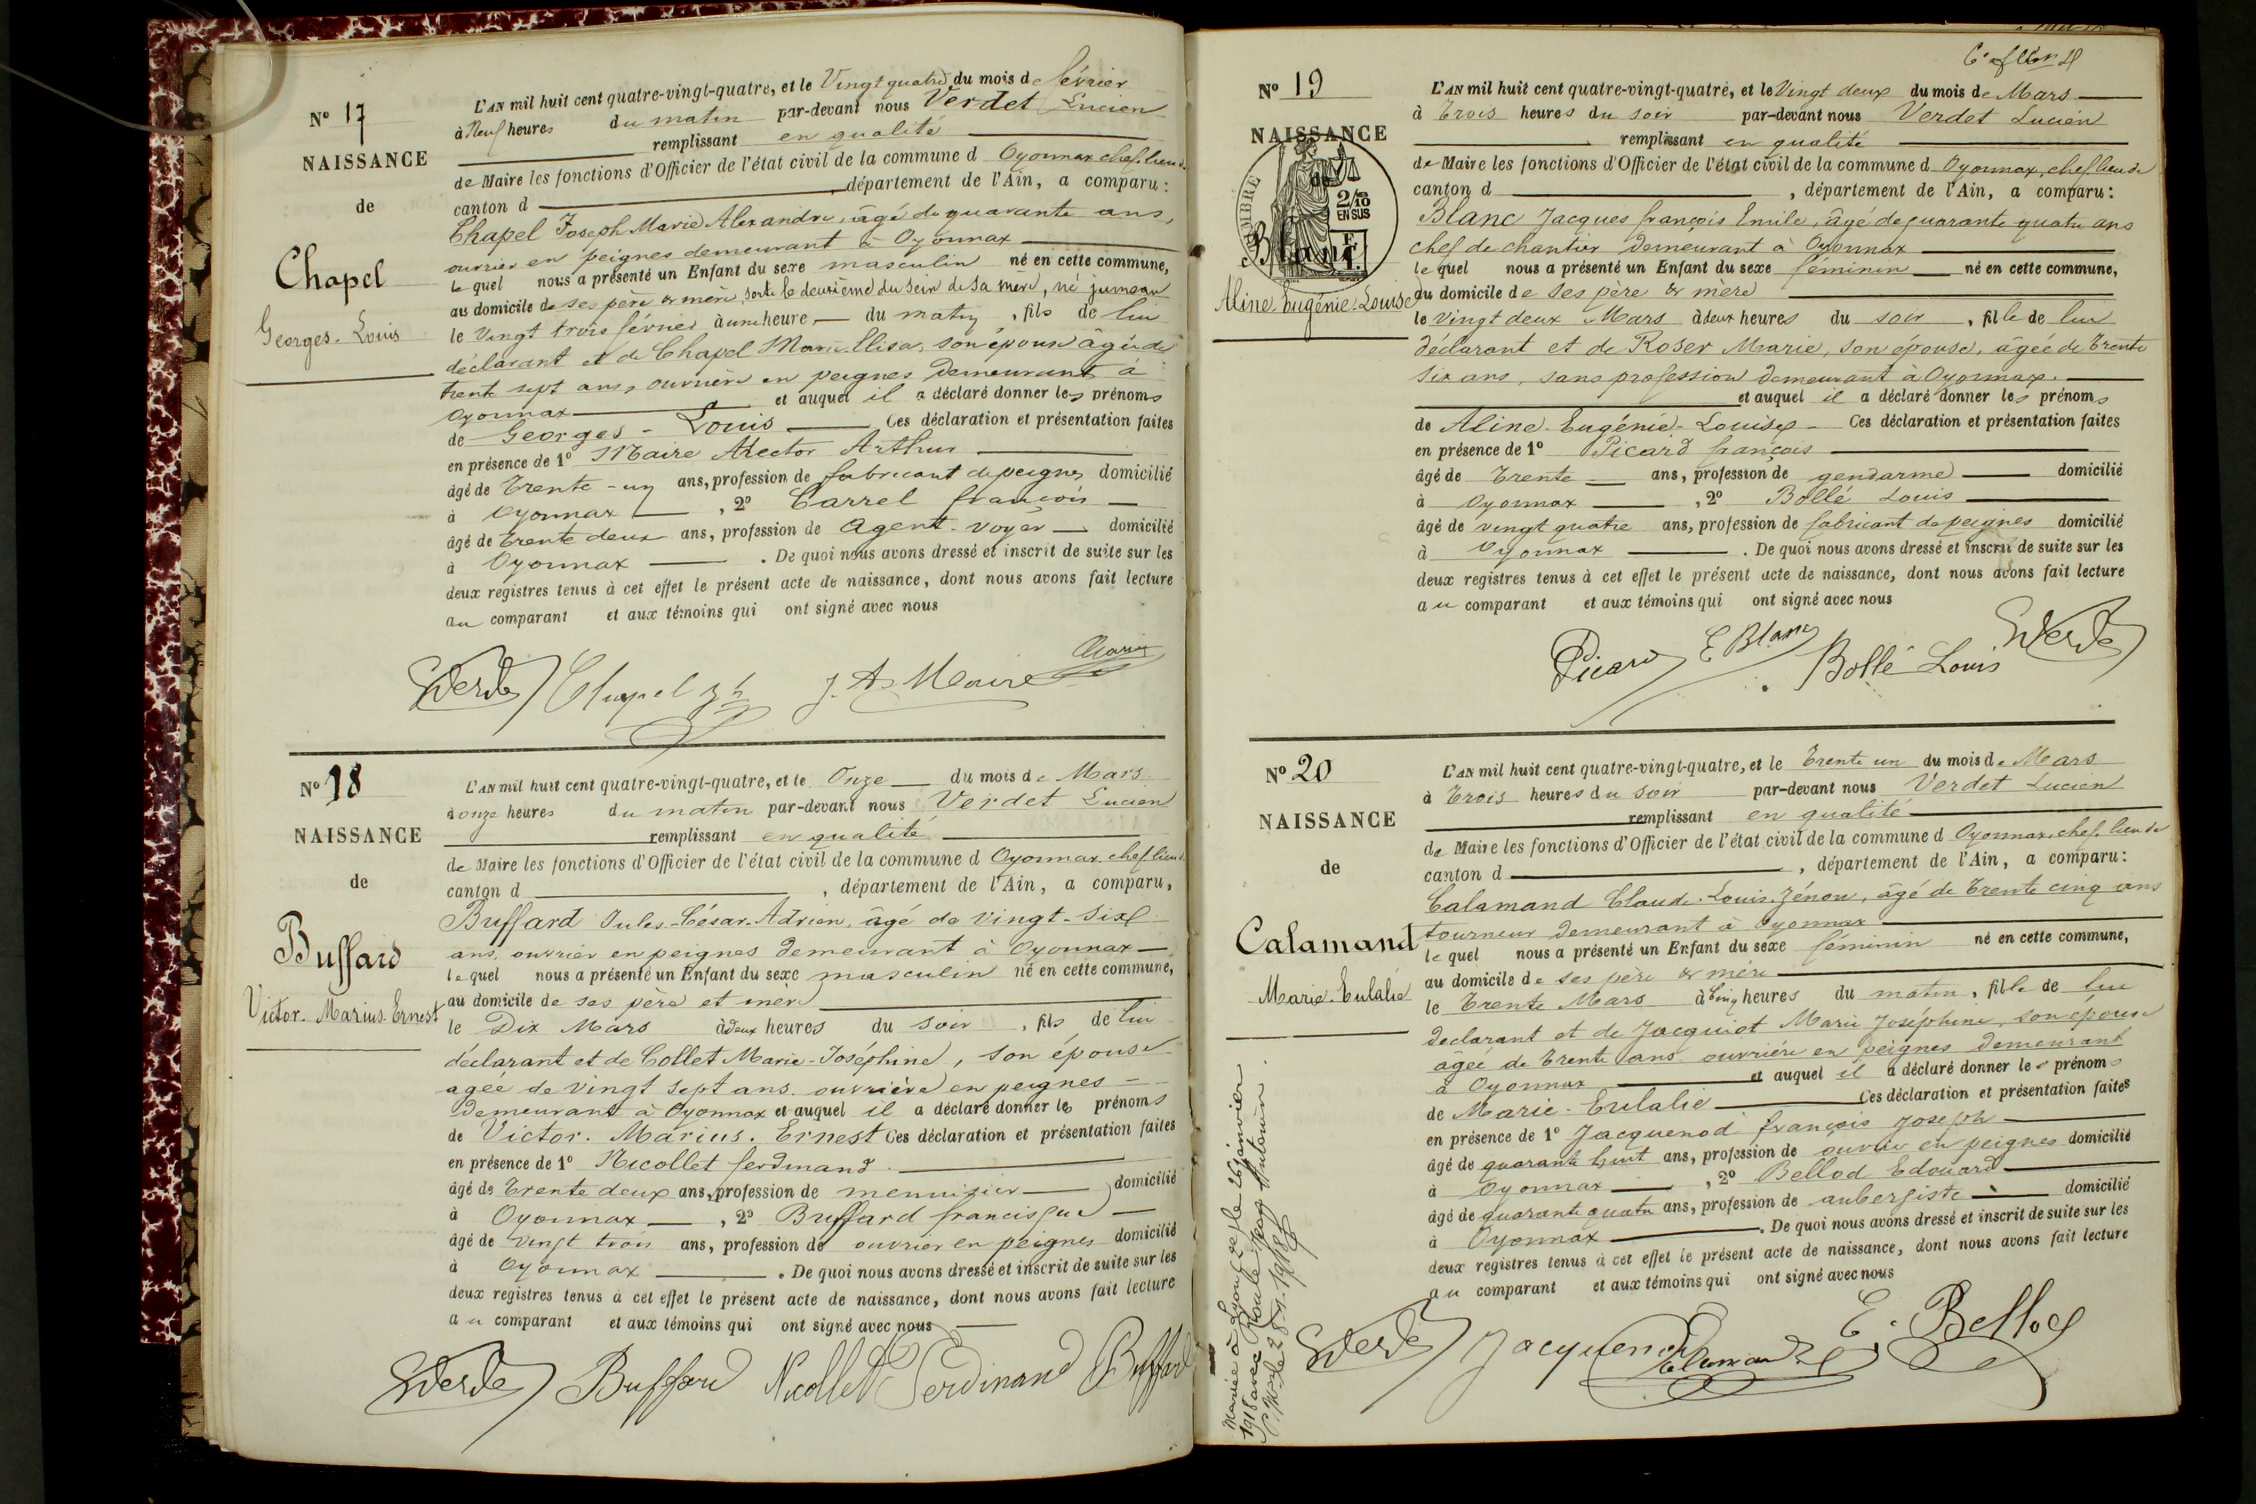 N° 17
NAISSANCE
de
Chapel
Georges. Louis
L'AN mil huit cent quatre-vingt-quatre, et le Vingt quatre du mois de février
à Neuf heures du matin par-devant nous Verdet Lucien
remplissant en qualité
de Maire les fonctions d'Officier de l'état civil de la commune d Oyonnax chef lieu de
canton d , département de l'Ain, a comparu :
Chapel Joseph Marie Alexandre, âgé de quarante ans,
ouvrier en peignes demeurant à Oyonnax
le quel nous a présenté un Enfant du sexe masculin né en cette commune,
au domicile de ses père & mère, sorti le deuxième du sein de sa mère, né jumeau
le Vingt trois février à une heure du matin, fils de lui
déclarant et de Chapel Marie Elisa, son épouse âgée de
trente sept ans, ouvrière en peignes demeurant à
Oyonnax et auquel il a déclaré donner les prénoms
de Georges - Louis Ces déclaration et présentation faites
en présence de 1° Maire Arthur
âgé de Trente-un ans, profession de fabricant de peignes domicilié
à Oyonnax , 2° Carrel françois
âgé de trente deux ans, profession de Agent-voyer domicilié
à Oyonnax . De quoi nous avons dressé et inscrit de suite sur les
deux registres tenus à cet effet le présent acte de naissance, dont nous avons fait lecture
au comparant et aux témoins qui ont signé avec nous
Verdet Chapel J. A. Maire
N° 18
NAISSANCE
de
Buffard
Victor. Marius. Ernest
L'AN mil huit cent quatre-vingt-quatre, et le Onze du mois de Mars
à onze heures du matin par-devant nous Verdet Lucien
remplissant en qualité
de Maire les fonctions d'Officier de l'état civil de la commune d Oyonnax chef lieu de
canton d , département de l'Ain, a comparu,
Buffard Jules-César-Adrien, âgé de vingt-six
ans, ouvrier en peignes demeurant à Oyonnax
le quel nous a présenté un Enfant du sexe masculin né en cette commune,
au domicile de ses père et mère
le Dix Mars à deux heures du soir, fils de lui
déclarant et de Collet Marie-Joséphine, son épouse
agée de vingt sept ans. ouvrière en peignes
demeurant à Oyonnax et auquel il a déclaré donner les prénoms
de Victor. Marius. Ernest Ces déclaration et présentation faites
en présence de 1° Nicollet ferdinand
âgé de Trente deux ans, profession de menuisier domicilié
à Oyonnax , 2° Buffard francisque
âgé de vingt trois ans, profession de ouvrier en peignes domicilié
à Oyonnax . De quoi nous avons dressé et inscrit de suite sur les
deux registres tenus à cet effet le présent acte de naissance, dont nous avons fait lecture
au comparant et aux témoins qui ont signé avec nous
Verdet Buffard Nicollet Ferdinand Buffard
N° 19
NAISSANCE
de
2/10
EN SUS
Blanc
Aline. Eugénie-Louise
L'AN mil huit cent quatre-vingt-quatre, et le Vingt deux du mois de Mars
à Trois heures du soir par-devant nous Verdet Lucien
remplissant en qualité
de Maire les fonctions d'Officier de l'état civil de la commune d Oyonnax, chef lieu de
canton d , département de l'Ain, a comparu :
Blanc Jacques françois Emile, âgé de quarante quatre ans
chef de chantier demeurant à Oyonnax
le quel nous a présenté un Enfant du sexe féminin né en cette commune,
au domicile de ses père & mère
le vingt deux Mars à deux heures du soir, fille de lui
déclarant et de Roser Marie, son épouse, âgée de Trente
six ans, sans profession demeurant à Oyonnax.
et auquel il a déclaré donner les prénoms
de Aline-Eugénie-Louise Ces déclaration et présentation faites
en présence de 1° Picard françois
âgé de Trente ans, profession de gendarme domicilié
à Oyonnax , 2° Bollé Louis
âgé de vingt quatre ans, profession de fabricant de peignes domicilié
à Oyonnax . De quoi nous avons dressé et inscrit de suite sur les
deux registres tenus à cet effet le présent acte de naissance, dont nous avons fait lecture
au comparant et aux témoins qui ont signé avec nous
Picard E Blanc Bollé Louis Verdet
N° 20
NAISSANCE
de
Calamand
Marie. Eulalie
L'AN mil huit cent quatre-vingt-quatre, et le Trente un du mois de Mars
à Trois heures du soir par-devant nous Verdet Lucien
remplissant en qualité
de Maire les fonctions d'Officier de l'état civil de la commune d Oyonnax, chef lieu de
canton d , département de l'Ain, a comparu :
Calamand Claude. Louis. Zénon, âgé de Trente cinq ans
tourneur demeurant à Oyonnax
le quel nous a présenté un Enfant du sexe féminin né en cette commune,
au domicile de ses père & mère
le Trente Mars à Cinq heures du matin, fille de lui
déclarant et de Jacquiot Marie Joséphine, son épouse
âgée de Trente ans ouvrière en peignes demeurant
à Oyonnax et auquel il a déclaré donner les prénoms
de Marie-Eulalie Ces déclaration et présentation faites
en présence de 1° Jacquenod françois Joseph
âgé de quarante huit ans, profession de ouvrier en peignes domicilié
à Oyonnax , 2° Bellod Edouard
âgé de quarante quatre ans, profession de aubergiste domicilié
à Oyonnax . De quoi nous avons dressé et inscrit de suite sur les
deux registres tenus à cet effet le présent acte de naissance, dont nous avons fait lecture
au comparant et aux témoins qui ont signé avec nous
Verdet Jacquenod Calamand E. Bellod
Mariée à Lyon janvier
1918 avec Antonin